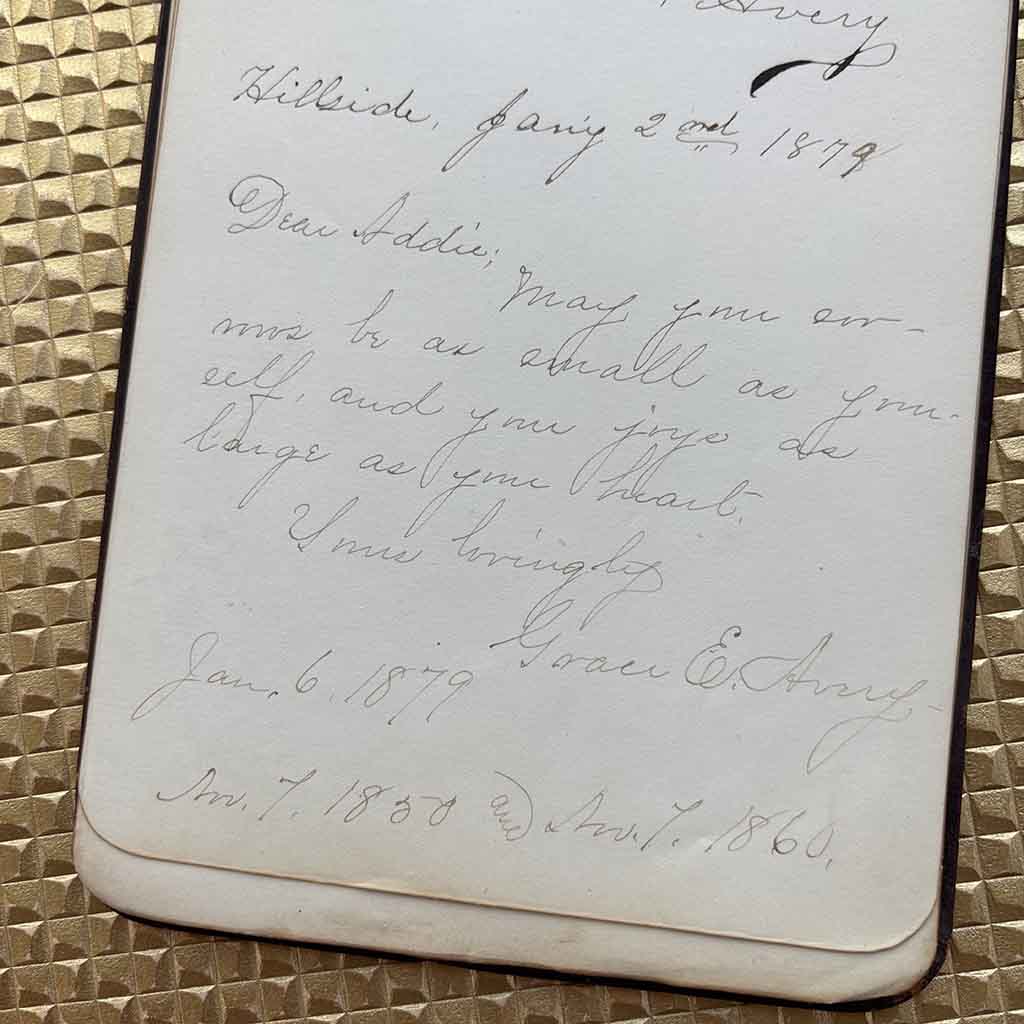 Avery
Hillside, Jan'y 2nd, 1879
Dear Addie;
May your sor-
rows be as small as your-
self, and your joys as
large as your heart.
Yours lovingly
Grace E. Avery
Jan. 6. 1879
Nov. 7. 1850 and Nov. 7. 1860.